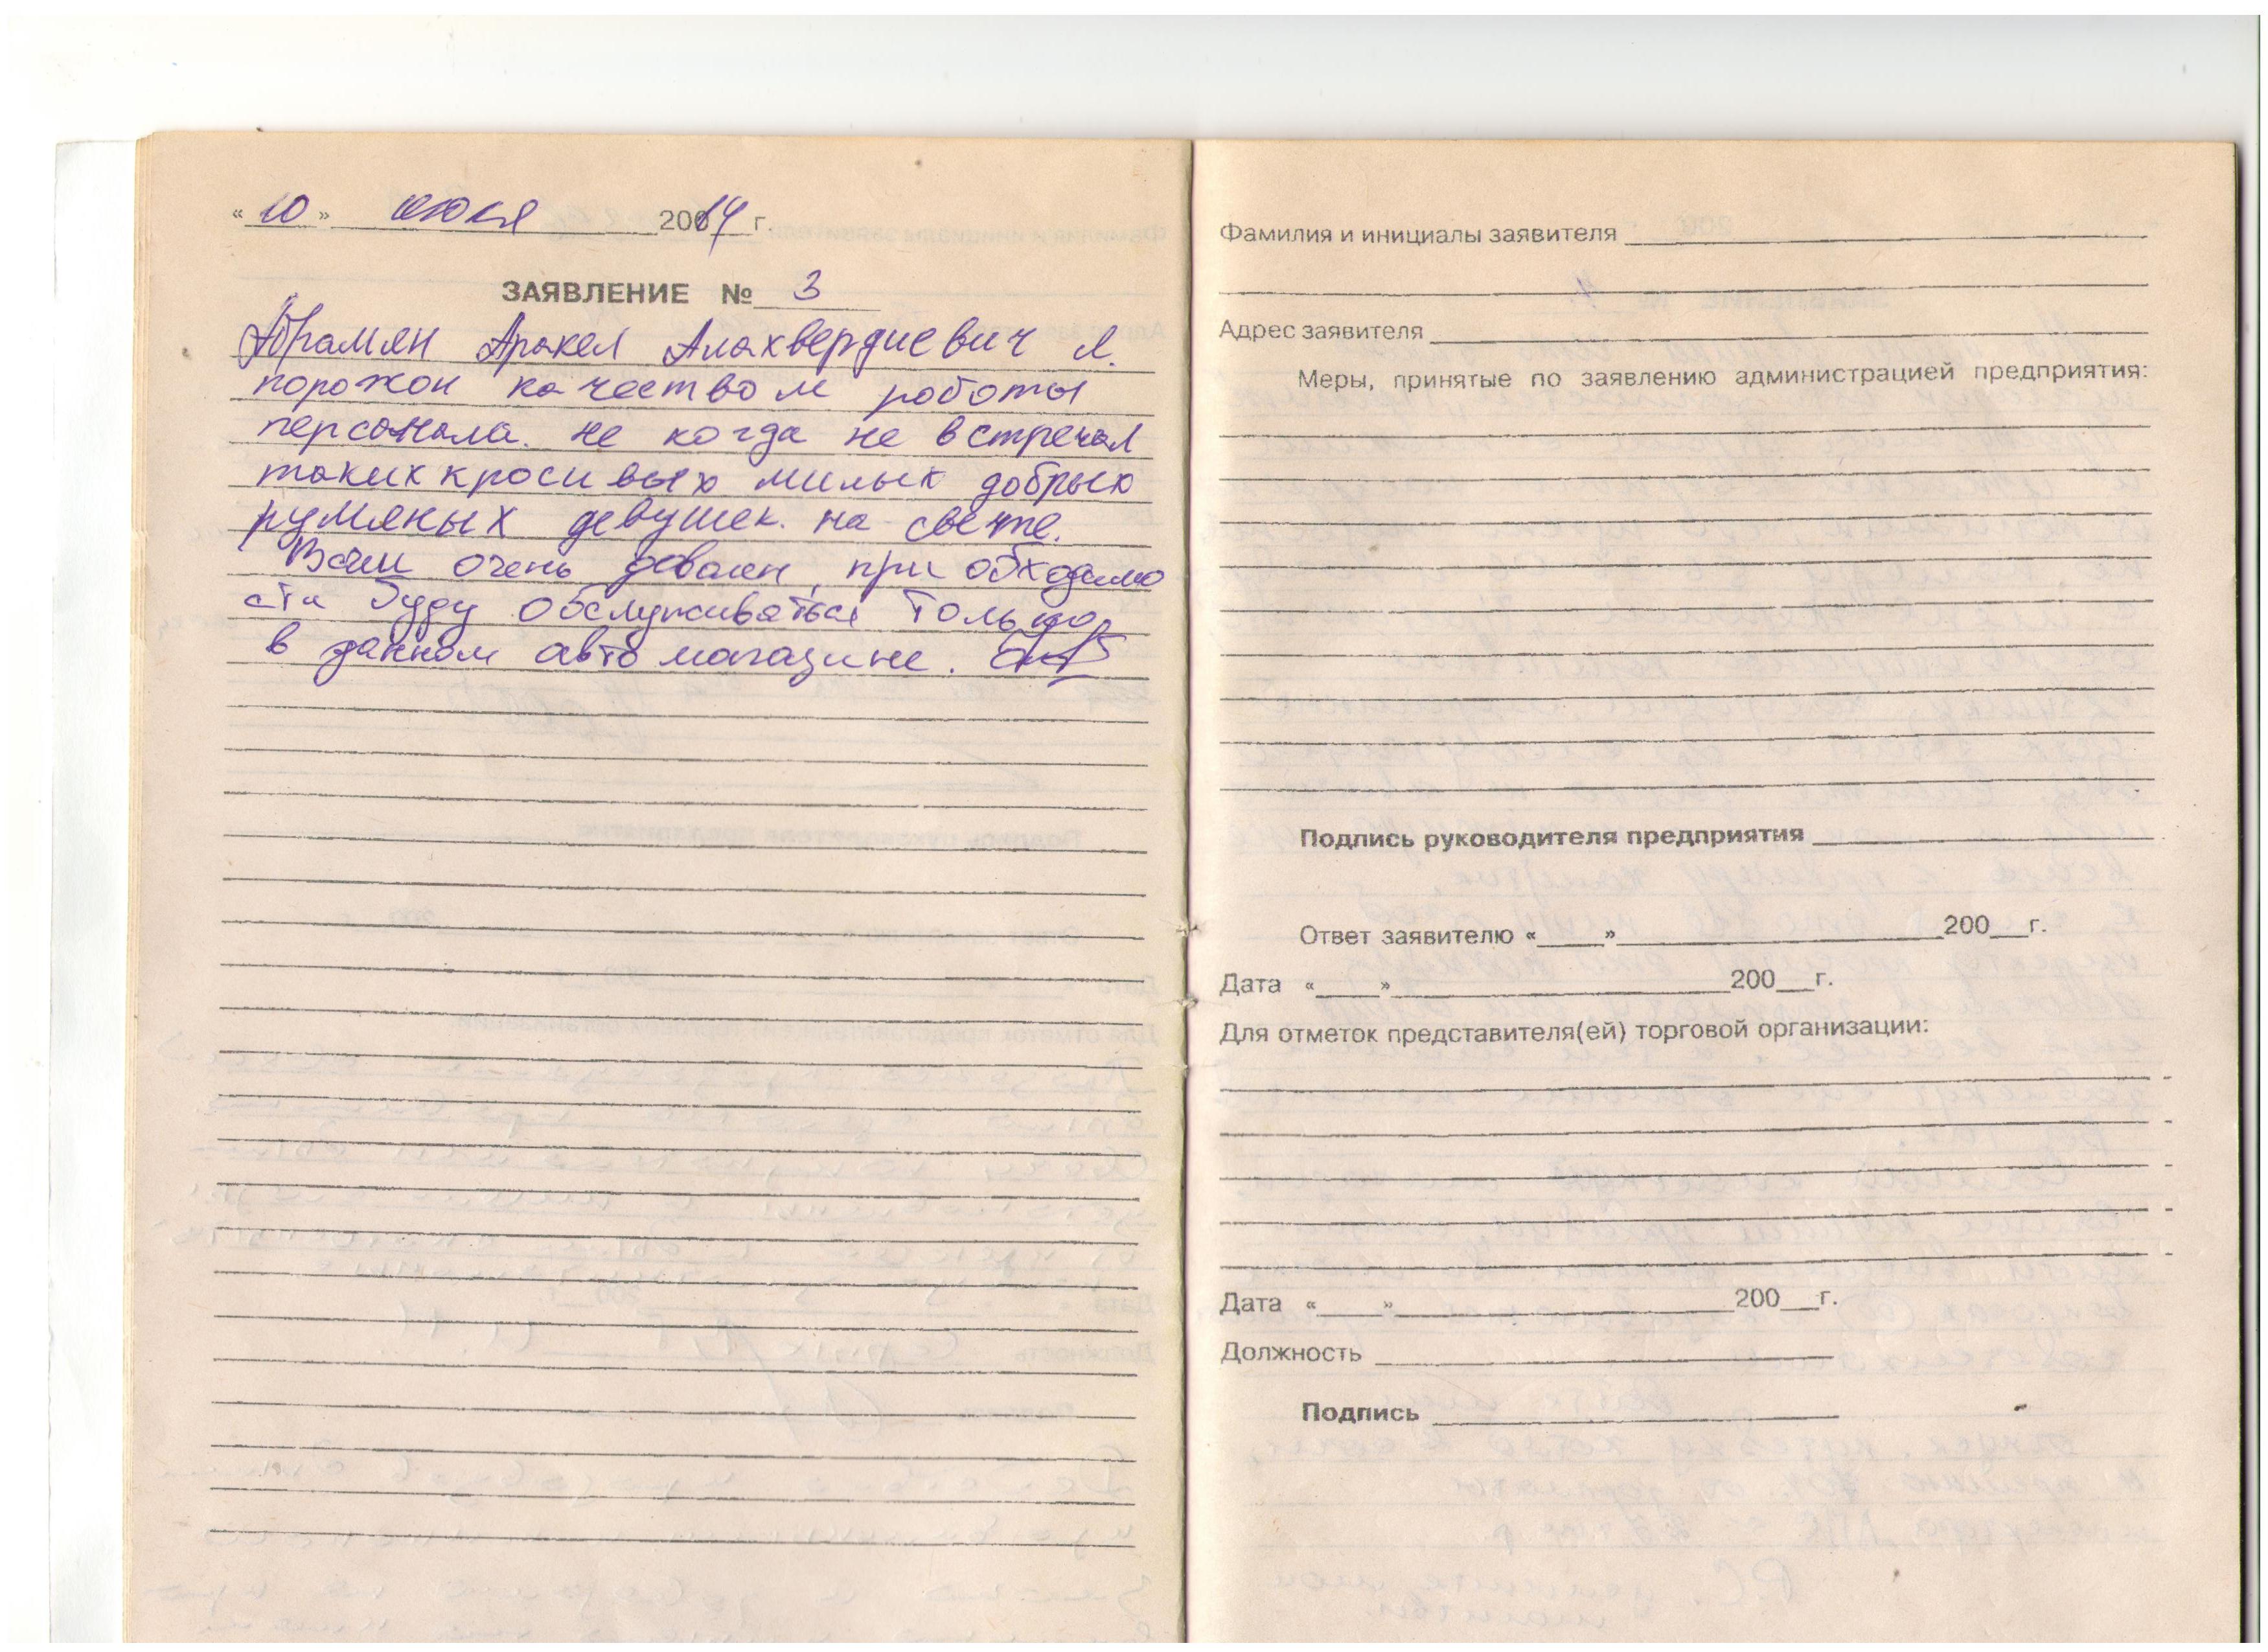 «10» июля 2014 г.
ЗАЯВЛЕНИЕ № 3
Абрамян Аракел Алахвердиевич Я.
поражон качеством работы
персонала. не когда не встречал
таких краси вых милых добрых
румяных девушек. на свете.
Всем очень доволен, при обходимо
сти буду обслуживаться только
в данном авто магазине.
Фамилия и инициалы заявителя
Адрес заявителя
Меры, принятые по заявлению администрацией предприятия:
Подпись руководителя предприятия
Ответ заявителю «____»____200__г.
Дата «____»____200__г.
Для отметок представителя(ей) торговой организации:
Дата «____»____200__г.
Должность
Подпись